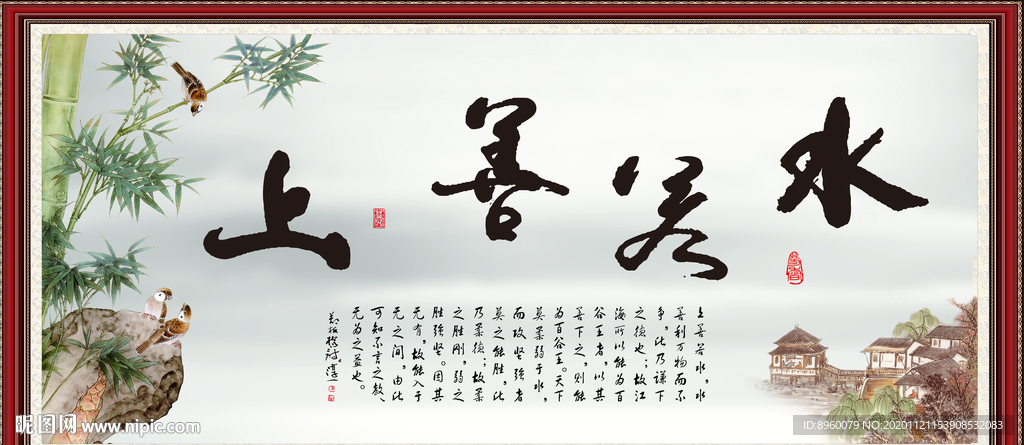 上善若水
上善若水，水
善利万物而不
争，此乃谦下
之德也；故江
海所以能为百
谷王者，以其
善下之，则能
为百谷王。天下
莫柔弱于水，
而攻坚强者
莫之能胜，此
乃柔德；故柔
之胜刚，弱之
胜强坚。因其
无有，故能入于
无之间，由此
可知不言之教、
无为之益也。
昵图网 www.nipic.com
ID:8960079 NO:20201121153908532083